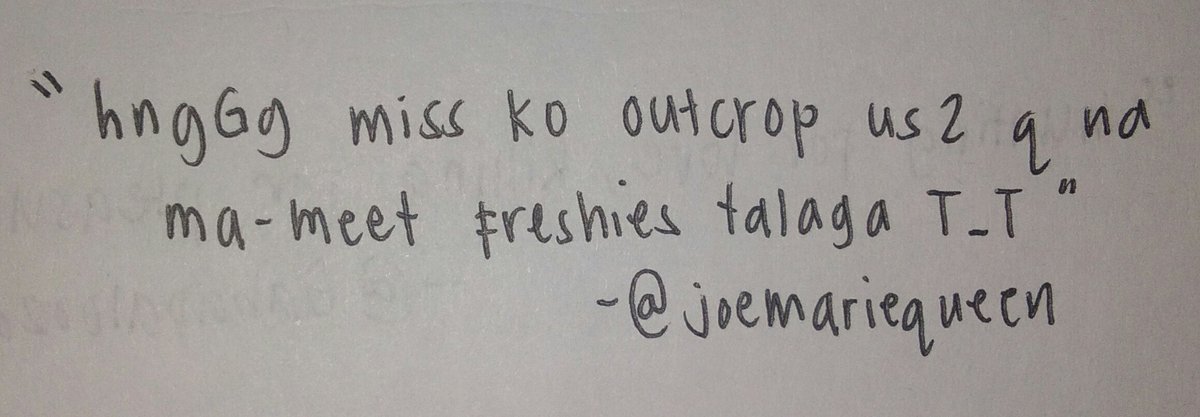 "hngGg miss ko outcrop us2 q na
ma-meet freshies talaga T_T"
-@joemariequeen